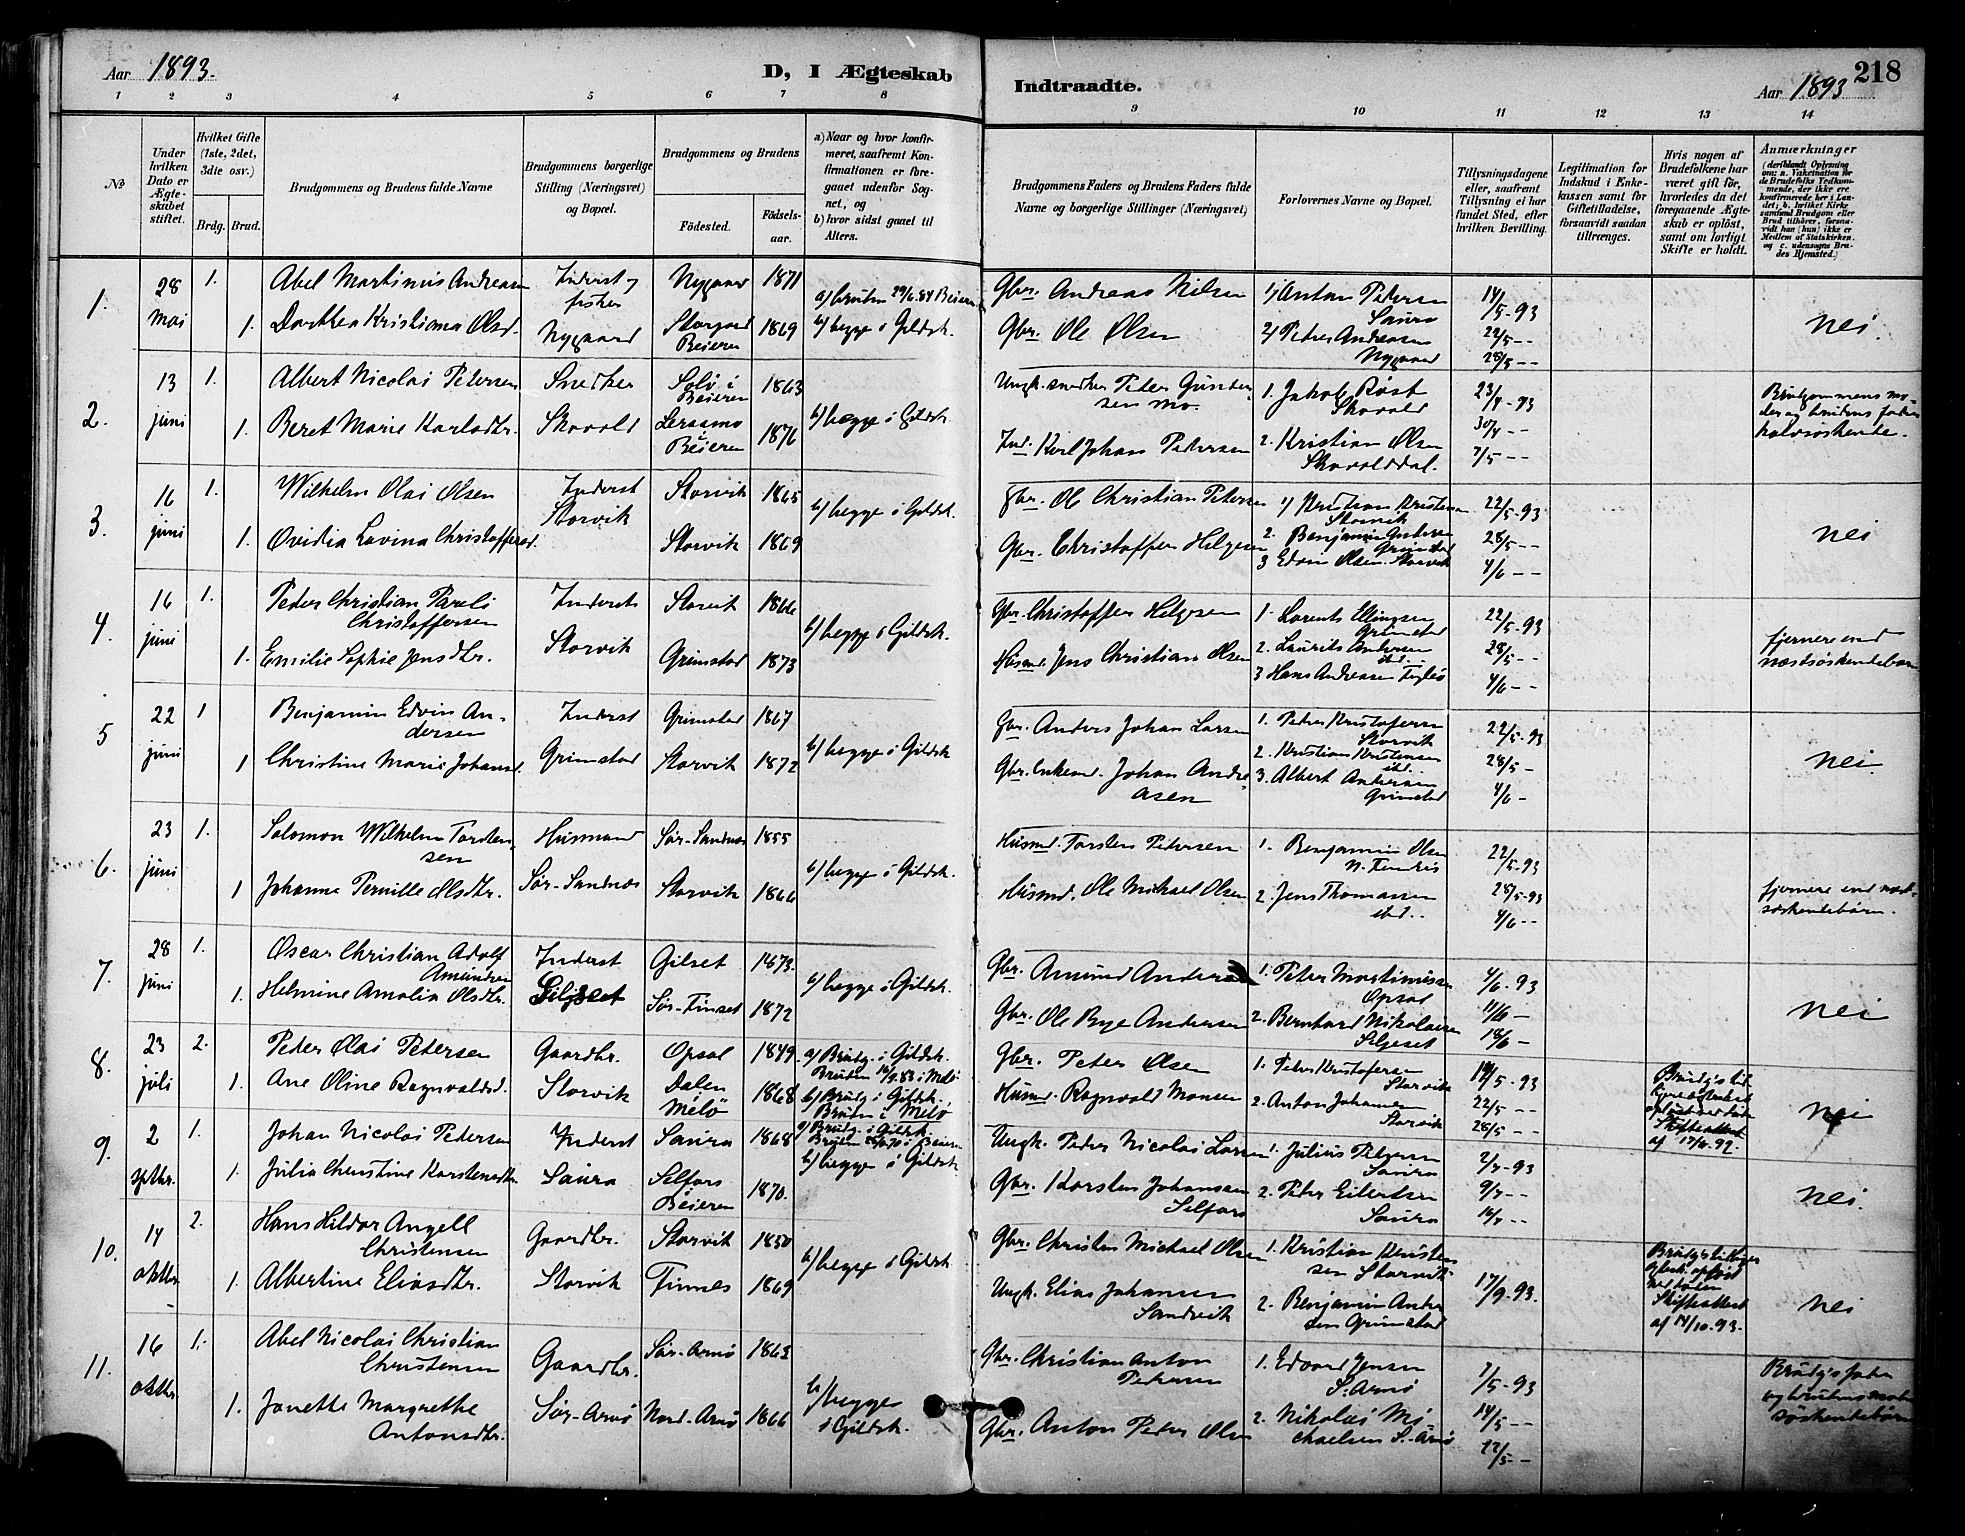 Aar 1893.
D, I Ægteskab
Indtraadte.
Aar 1893
218
1 2 3 4 5 6 7 8 9 10 11 12 13 14
No
Under hvilken Dato er Ægteskabet stiftet.
Hvilket Gifte (1ste, 2det, 3die osv.)
Brdg. Brud.
Brudgommens og Brudens fulde Navne
Brudgommens borgerlige Stilling (Næringsvei) og Bopæl.
Brudgommens og Brudens
Fødested.
Fødselsaar.
a) Naar og hvor konfirmeret, saafremt Konfirmationen er foregaaet udenfor Sognet, og
b) hvor sidst gaaet til Alters.
Brudgommens Faders og Brudens Faders fulde Navne og borgerlige Stillinger (Næringsvei)
Forlovernes Navne og Bopæl.
Tillysningsdagene eller, saafremt Tillysning ei har fundet Sted, efter hvilken Bevilling.
Legitimation for Indskud i Enkekassen samt for Giftetilladelse, forsaavidt saadan tiltrænges.
Hvis nogen af Brudefolkene har været gift før, hvorledes da det foregaaende Ægteskab er opløst, samt om lovligt Skifte er holdt.
Anmærkninger
(deriblandt Oplysning om: a. Vakcination for de Brudefolks Vedkommende, der ikke ere konfirmerede her i Landet; b. hvilket Kirkesamfund Brudgom eller Brud tilhører, forsaavidt han (hun) ikke er Medlem af Statskirken, og c. udensogns Brudes Hjemsted.)
1. 28 Mai 1. Abel Martinius Andreasen Inderst og fisker Nygaard 1871 a) bruden 29/6.84 Beieren Gbr. Andreas Nilsen 1) Anton Petersen Saura 14/5-93
1. Dorthea Kristiana Olsd. Nygaard Storgaard Beieren 1869 b) begge i Gildsk. Gbr. Ole Olsen 2) Peder Andreasen Nygaard 22/5-- 28/5-- nei.
2. 13 juni 1. Albert Nicolai Petersen Snedker Solø i Beieren 1863 Ungk. snedker Peder Guntersen Mo. 1. Jakob Røst Skavold 23/4-93 Brudgommens moder og brudens fader halvsøskende.
1. Beret Marie Karlsdtr. Skavold Leraamo Beieren 1876 b) begge i Gildsk Ind. Karl Johan Petersen 2. Kristian Olsen Skavolddal. 30/4-- 7/5--
3. 16 juni 1. Wilhelm Olai Olsen Inderst Storvik Storvik 1865 b) begge i Gildsk. Gbr. Ole Christian Petersen 1) Kristian Kristensen Storvik 22/5-93
1. Ovidia Lovina Christoffersd. Storvik 1869 Gbr. Christoffer Helgesen 2. Benjamin Andersen Grimstad 28/5-- 3 Edvin Olsen Storvik 4/6-- nei
4. 16 juni 1. Peder Christian Pareli Christoffersen Inderst Storvik 1866 Gbr. Christoffer Helgesen 1. Lorents Ellingsen Grimstad 22/5-93
1. Emilie Sophie Jensdtr. Storvik Grimstad 1873 b) begge i Gildsk. Husmd. Jens Christian Olsen 2. Laurits Andersen ibd. 28/5-- 3 Hans Andreasen 4/6-- fjernere end næstsøskendebørn
5 22 juni 1 Benjamin Edvin Andersen Inderst Grimstad 1867 Gbr. Anders Johan Larsen 1. Peder Kristofersen Storvik 22/5-93
1 Christine Marie Johansd. Grimstad Storvik 1872 b) begge i Gildsk Gbr. Enkemd. Johan Andreasen 2. Kristian Kristensen ibd. 28/5- 3. Albert Andersen Grimstad 4/6- nei.
6. 23 juni 1. Salomon Wilhelm Torstensen Husmand Sør-Sandnæs 1855 Husmd. Torsten Petersen 1. Benjamin Olsen 22/5-93
1 Johanne Pernille Olsdtr. Sør-Sandnæs Storvik 1866 b) begge i Gildsk. Husmd. Ole Mikael Olsen 2. Jens Thomassen ibd. 28/5-93 4/6-- fjernere end næstsøskendebørn.
7. 28 juni 1. Oscar Christian Adolf Amundsen Inderst Gilset 1873. Gbr. Amund Andersen 1. Peter Martinussen Opsal 4/6-93
1. Helmine Amalia Olsdtr. Giljeset Sør-Finset 1872 b) begge i Gildsk. Gbr. Ole Bye Andersen 2. Bernhard Nikolaisen Seljeset 11/6- 18/6- nei
8. 23 juli 2. Peder Olai Petersen Gaardbr. Opsal 1849. a) Brudg. i Gildsk. Bruden 16/9.83 i Melø Gbr. Peter Olsen 1. Peder Kristofersen Storvik 14/5-93
1. Ane Oline Ragnvaldsd. Storvik Dalen Melø 1868 b) Brudg i Gildsk. Bruden i Melø Husmd. Ragnvald Monsen 2. Anton Johansen Storvik 22/5-- 28/5-- nei
9. 2 septbr. 1. Johan Nicolai Pedersen Inderst Saura 1868 a) Brudg. i Gildsk. Ungk. Peder Nicolai Larsen 1. Julius Petersen Saura 2/7-93
1. Julia Christine Karstensdtr. Saura Selfors Beieren 1870. b) begge i Gildsk. Gbr. Karsten Johansen Selfors 2. Peter Eilertsen Saura 9/7-- 16/7-- nei.
10. 14 oktbr. 2. Hans Hildor Angell Christensen Gaardbr. Storvik 1850 Gbr. Christen Michael Olsen 1. Kristian Kristensen Storvik
1. Albertine Eliasdtr. Storvik Finnes 1869 b) begge i Gildsk. Ungk. Elias Johansen Sandvik 2. Benjamin Andersen Grimstad 17/9.93. Skifteattest af 14/10.93. nei
11. 16 oktbr. 1. Abel Nicolai Christian Christensen Gaardbr. Sør-Arnø 1863 Gbr. Christian Anton Petersen 1. Edvard Jensen S. Arnø 7/5-93
1. Janette Margrethe Antonsdtr. Sør-Arnø Nord-Arnø 1866 b) begge i Gildsk. Gbr. Anton Peder Olsen 2. Nikolai Michaelsen S.-Arnø 14/5-- 22/5-- Brudg's fader og brudens moder søskendebørn